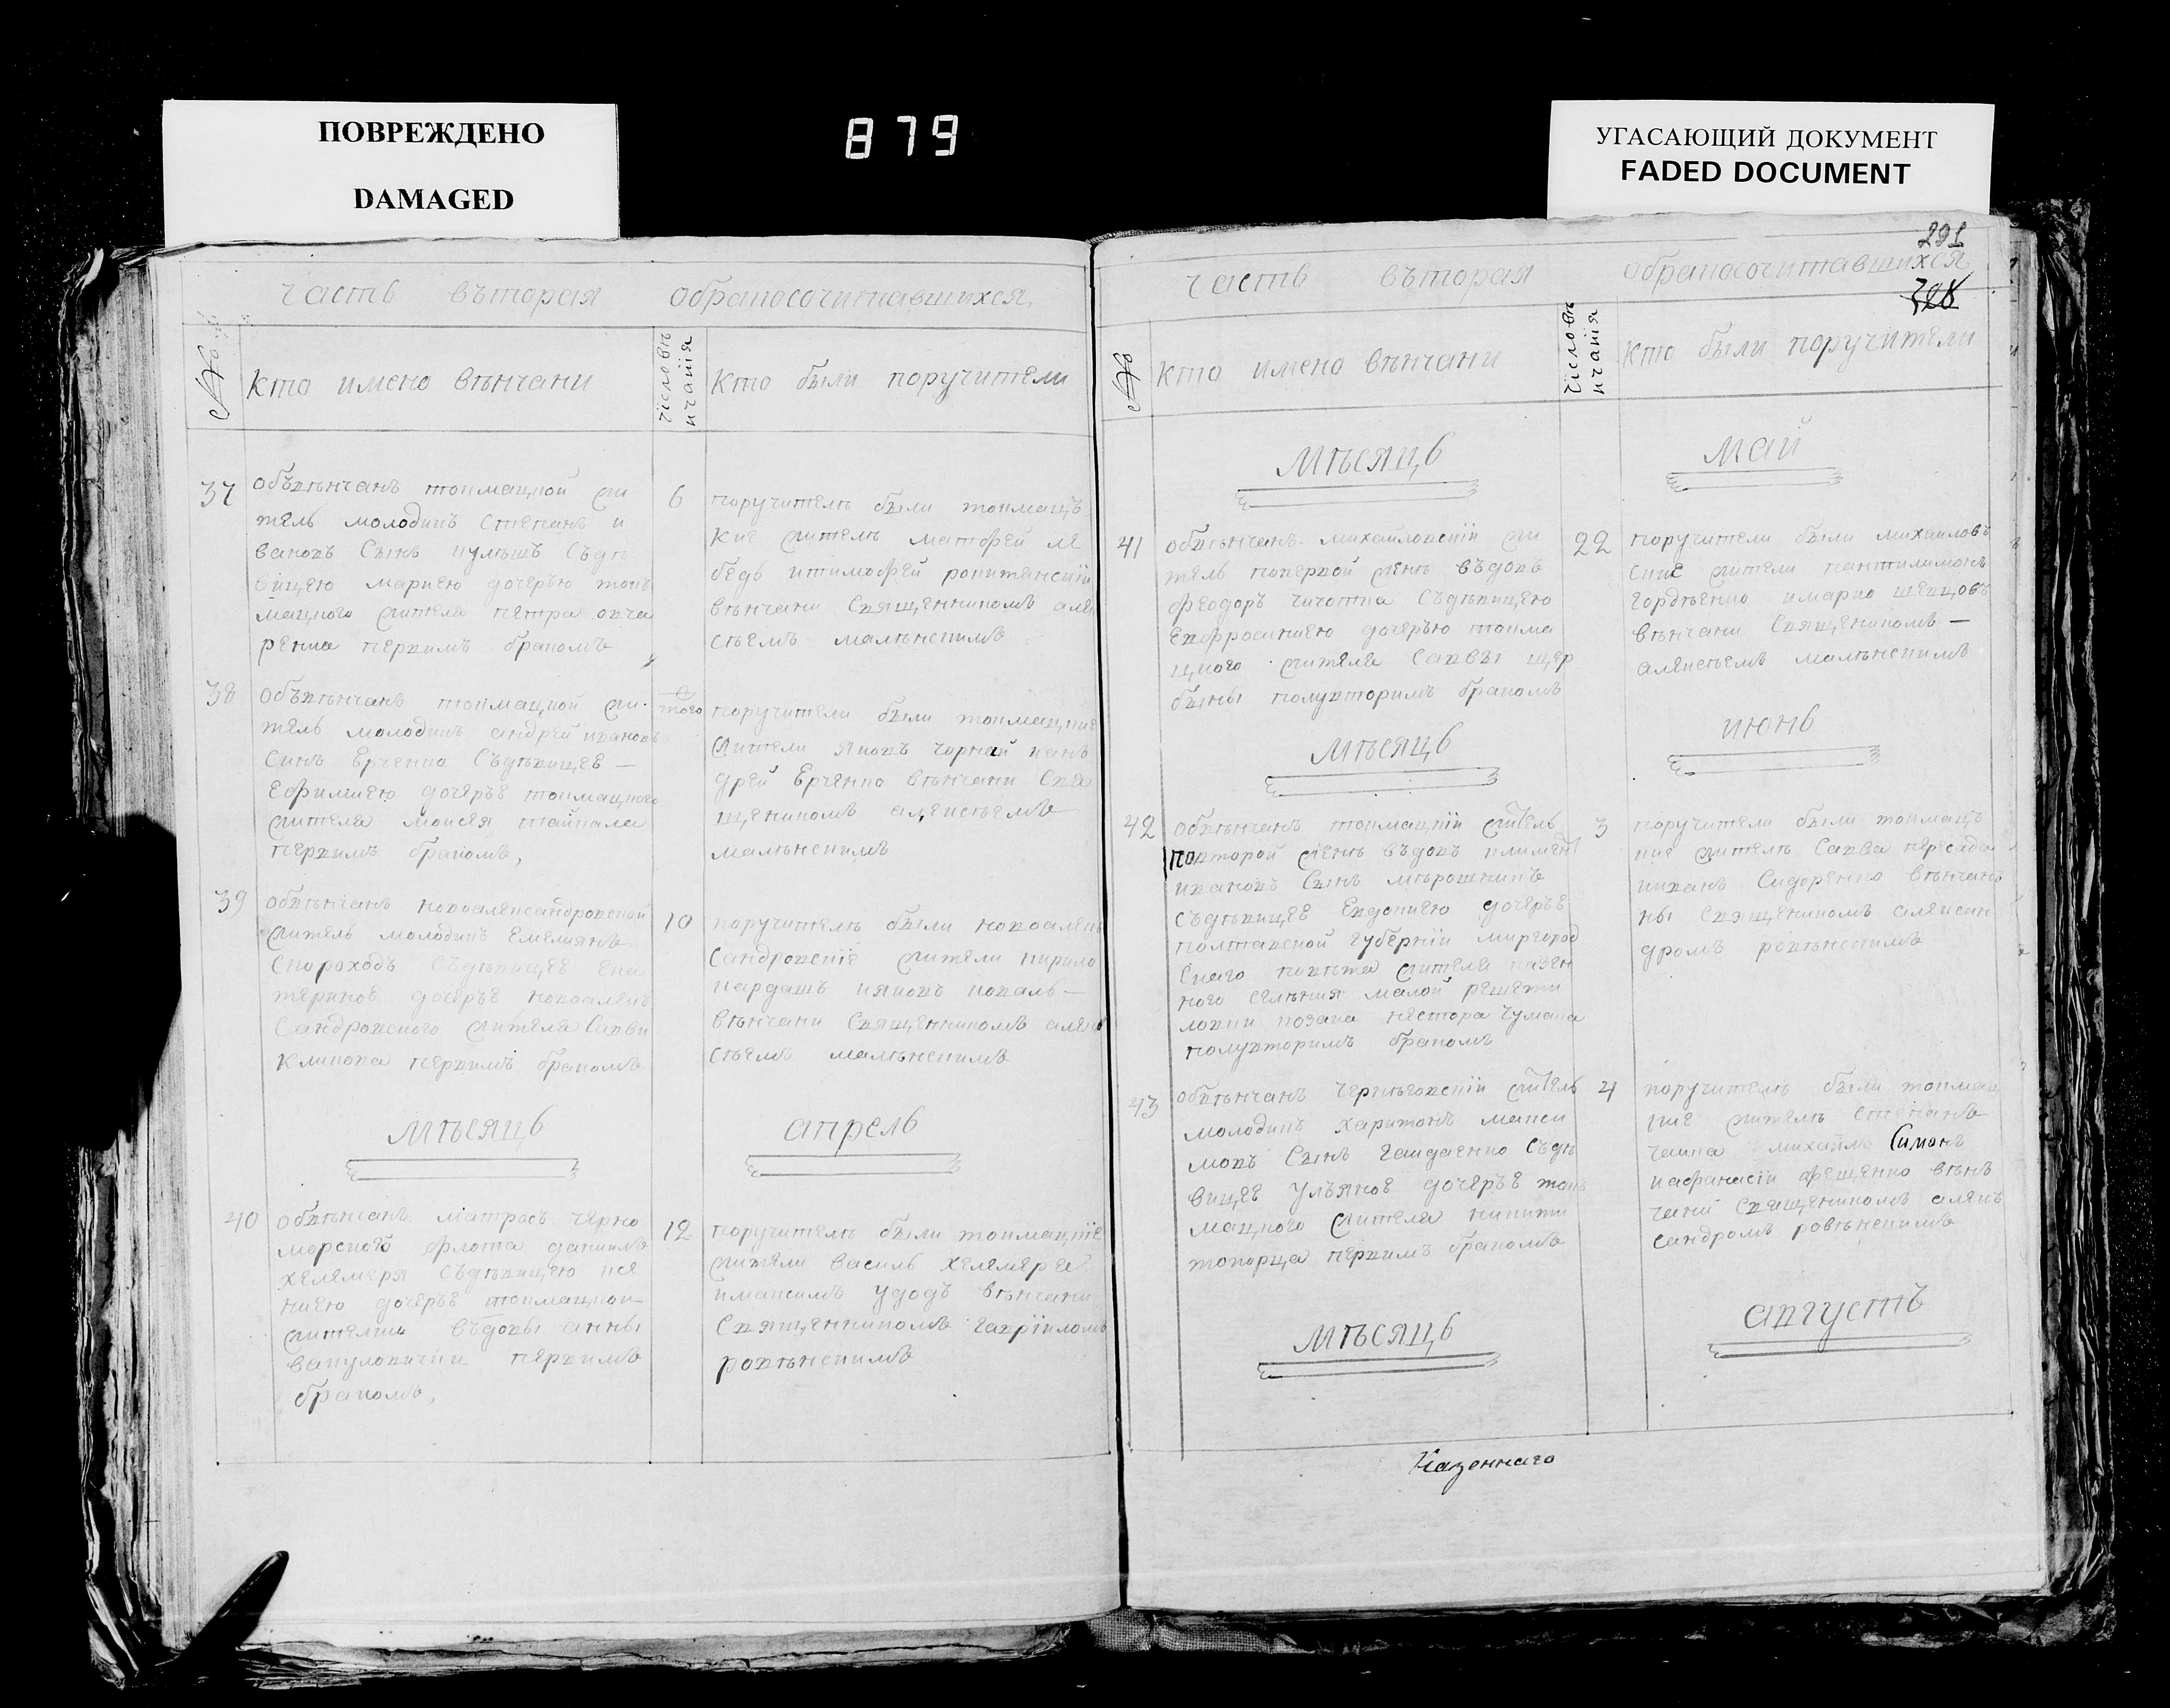 ПОВРЕЖДЕНО
DAMAGED
879
УГАСАЮЩИЙ ДОКУМЕНТ
FADED DOCUMENT
часть въторая обракосочитавшихся
№
кто имено вѣнчани
число вѣ
нчанія
кто были поручители
37
обвѣнчанъ токмацкой жи
тель молодикъ степанъ и
вановъ сынъ кулишъ съдѣ
вицею мариею дочерью ток
мацкого жителя петра овча
ренка первимъ бракомъ
6
поручителѣ были токмацъ
кие жителѣ матфей ле
бедь итимофей
вѣнчани священникомъ але
сѣемъ малѣнскимъ
38
обвѣнчанъ токмацкой жи
тель молодикъ андрей ивановъ
синъ Ерченко съдѣвицее
Ефимиею дочерье токмацкого
жителя моисея
первимъ бракомъ,
того
поручители были токмацкие
жители яковъ чорный иан
дрей Ерченко вѣнчани свя
щеникомъ алексѣемъ
малѣнскимъ
39
обвѣнчанъ новоалександровской
житель молодикъ Емелиянъ
скороходъ съдѣвицее Ека
териное дочерье новоалек
сандровского жителя савви
клинока первимъ бракомъ
10
поручителѣ были новоалек
сандровскіе жители кирило
кардашъ ияковъ коваль
вѣнчани священникомъ алек
сѣемъ малѣнскимъ
мѣсяць апрель
40
обвѣнчанъ матросъ черно
морского флота даниилъ
хелемеря съдѣвицею ксе
ниею дочерье токмацкой
жителки въдовы анны
вакуловички первимъ
бракомъ,
12
поручителѣ были токмацкіе
жители василь хелемеря
имаксимъ удодъ вѣнчани
священникомъ гавріиломъ
ровѣнскимъ
291
часть въторая обракосочитавшихся
№
кто имено вѣнчани
число вѣ
нчанія
кто были поручители
мѣсяць май
41
обвѣнчанъ михайловскій жи
тель попервой женѣ въдовъ
феодоръ чичотка съдѣвицею
Евфросиниею дочерью токма
цкого жителя саввы щер
быны полувторимъ бракомъ
22
поручители были михаиловъ
ские жители пантилимонъ
гордѣенко имарко шевцовъ
вѣнчани священикомъ
алексѣемъ малѣнскимъ
мѣсяць июнь
42
обвѣнчанъ токмацкій житель
повторой женѣ въдовъ климентъ
ивановъ сынъ мѣрошникъ
съдѣвицее Евдокиею дочерье
полтавской губерніи миргород
скаго повѣта жителя казен
ного селѣния малой решети
ловки козака нестора чумака
полувторимъ бракомъ
3
поручители были токмацъ
кие жителѣ савва пересада
ииванъ сидоренко вѣнчан
ны священикомъ алексан
дромъ ровѣнскимъ
43
обвѣнчанъ чернѣговскій житель
молодикъ харитонъ макси
мовъ сынъ гайдаенко съдѣ
вицее Ульяное дочерье ток
мацкого жителя никити
топорца первимъ бракомъ
4
поручителѣ были токмац
кие жителѣ степанъ
чайка михайло Симон
иафанасій фещенко вѣн
чаны священикомъ алек
сандромъ ровѣнскимъ
мѣсяць августъ
Казеннаго